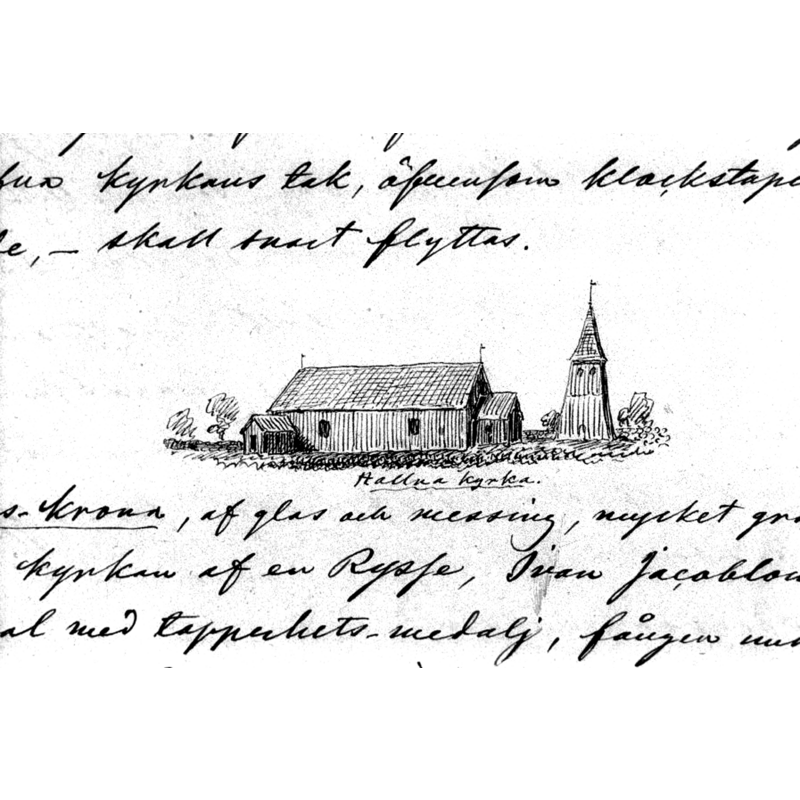 kyrkans tak, äfvensom klockstap
de, – skall snart flyttas.
Hallna kyrka.
s-krona, af glas och messing, mycket gr
kyrkan af en Rysse, Ivan Jacoblow
al med tapperhets-medalj, fången un